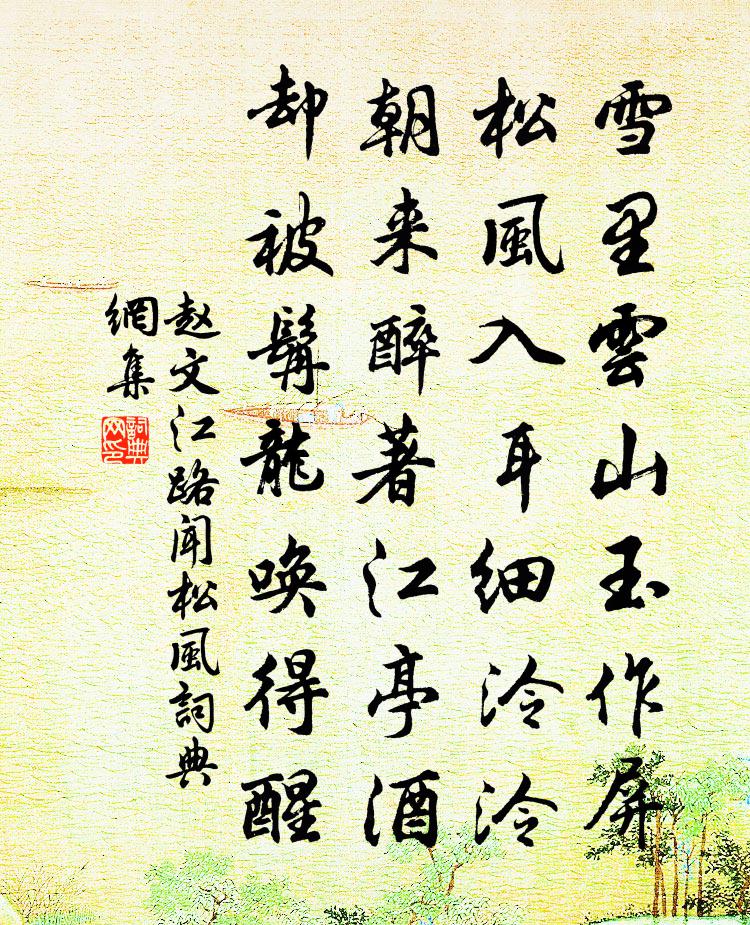 雪里雲山玉作屏
松風入耳細泠泠
朝来醉著江亭酒
却被髯龍喚得醒
赵文江路闻松風詞典
網集
詞典
网印